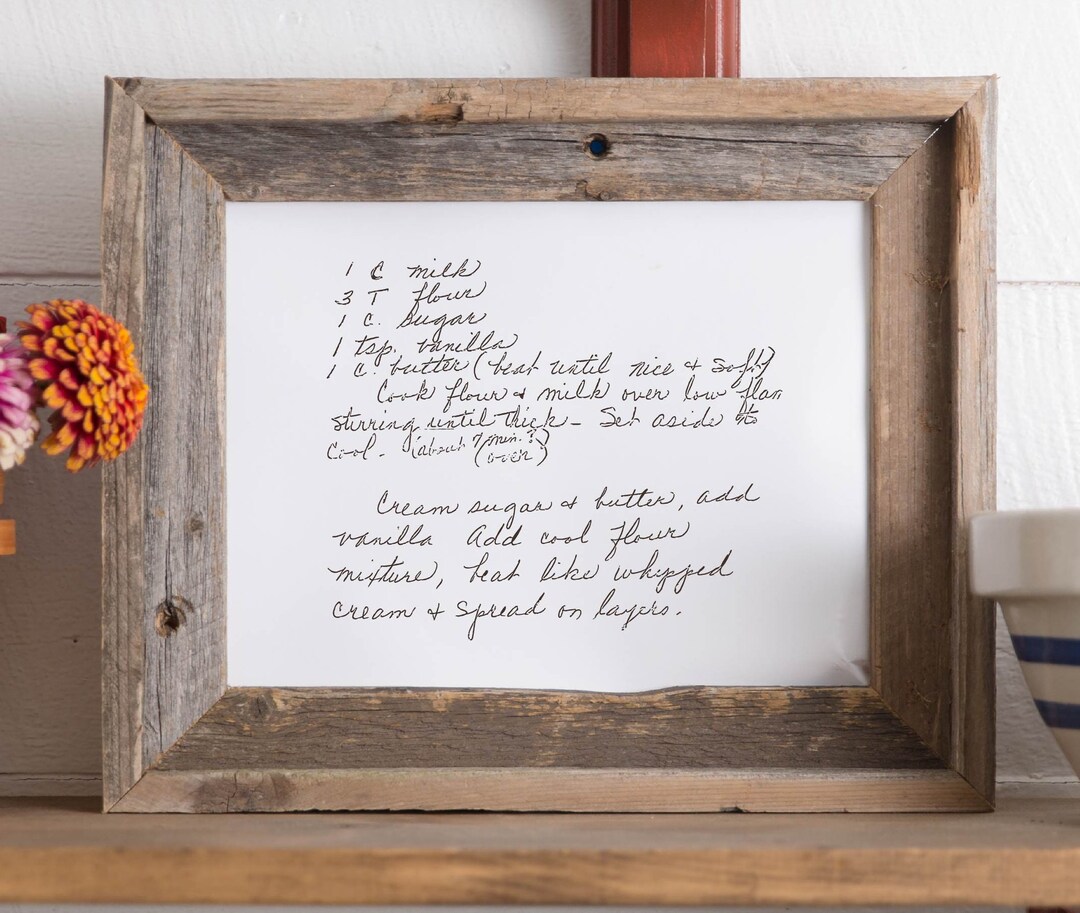 1 C milk
3 T flour
1 C. sugar
1 tsp. vanilla
1 C. butter (beat until nice & soft)
Cook flour & milk over low flam
stirring until thick - Set aside to
cool. (about 7 min.?)
(over)
Cream sugar & butter, add
vanilla Add cool flour
mixture, beat like whipped
cream & spread on layers.